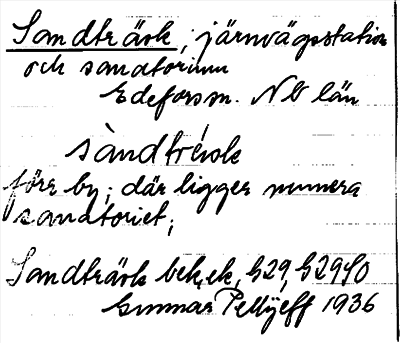 Sandträsk, järnvägsstation
och sanatorium
Edeforssn. Nb län
sàndtrésk
förr by; där ligger numera
sanatoriet;
Sandträsk bek, ek, G29, G29SO
Gunnar Pellijeff 1936